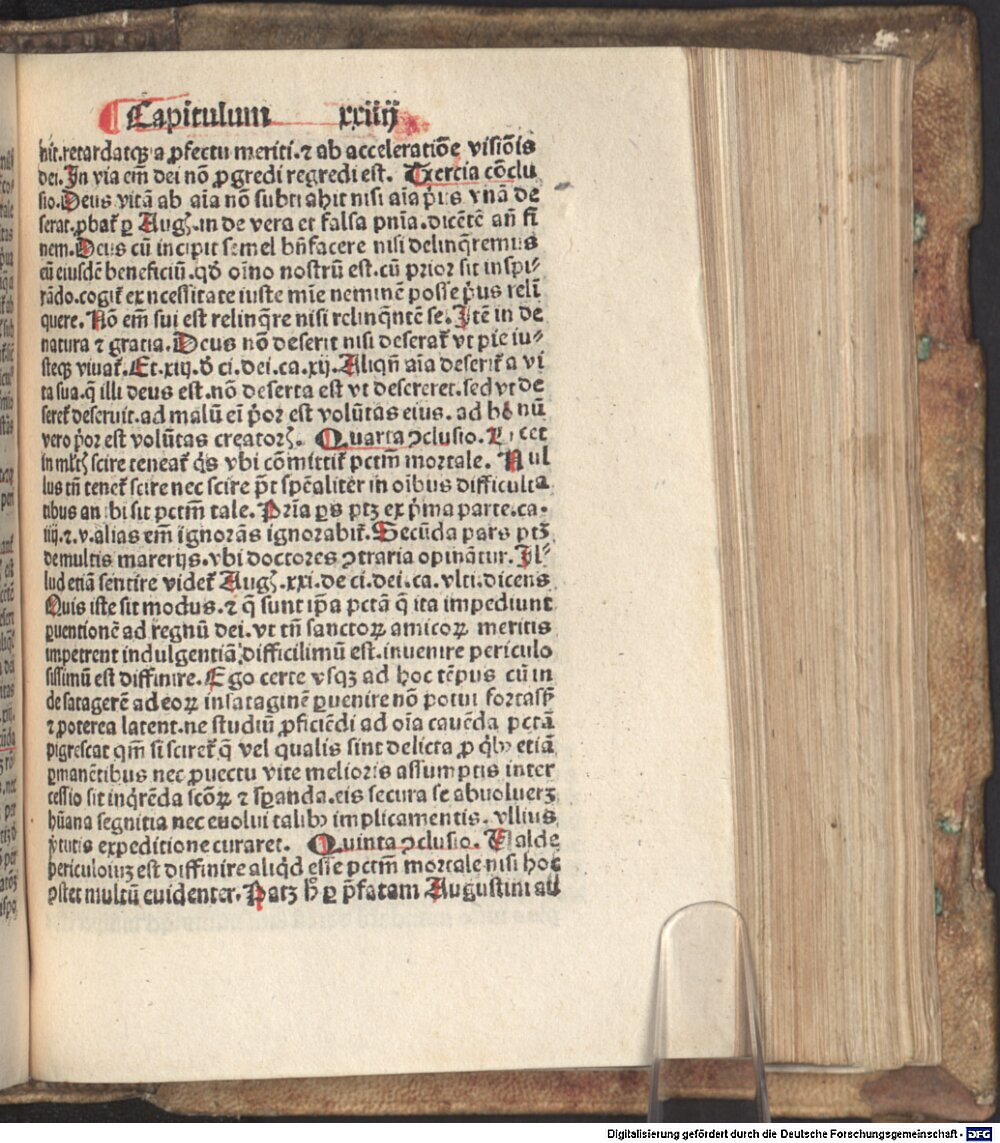 Capitulum xxiiij
bit.retardatqꝫ a ꝓfectu meriti.⁊ ab acceleratiõe visiõis
dei.In via em̃ dei nõ ꝓgredi regredi est. Txercia cõclu
sio.Deus vitã ab aĩa nõ subtrahit nisi aĩa pͥus vnã de
serat.ꝓbat᷑ ꝑ Augꝰ.in de vera et falsa pnĩa.dicẽtẽ añ fi
nem.Deus cũ incipit semel bñfacere nisi delinq̃remus
cũ eiusdẽ beneficiũ.qḋ oĩno nostrũ est.cũ prior sit inspi⸗
rãdo.cogit᷑ ex ncessitate iuste mĩe neminẽ posse pͥus reli
quere. Nõ em̃ sui est relinq̃re nisi relinq̃ntẽ se.Itẽ in de
natura ⁊ gratia.Deus nõ deserit nisi deserat᷑ vt pie iu⸗
steqꝫ viuat᷑.Et.xiij.ḋ ci.dei.ca.xij.Aliqñ aĩa deserit᷑ a vi
ta sua.q̃ illi deus est.nõ deserta est vt desereret.sed vt de
seret᷑ deseruit.ad malũ eĩ pͥor est volũtas eius. ad bo nũ
vero pͥor est volũtas creatorꝭ. Quarta ↄclusio. Licet
in mltꝭ scire teneat᷑ qͥs vbi cõmittit᷑ pctm̃ mortale. Nul
lus tñ tenet᷑ scire nec scire põt spẽaliter in oĩbus difficulta
tibus an vbi sit pctm̃ tale. Pria ps ptꝫ ex pͥma parte.ca.
iiij.⁊.v.alias em̃ ignorãs ignorabit᷑.Secũda pars ptꝫ
de multis materijs.vbi doctores ↄtraria opinãtur. Il⸗
lud etiã sentire videt᷑ Augꝰ.xxi.de ci.dei.ca.vlti.dicens
Quis iste sit modus.⁊ q̃ sunt ip̃a pctã q̃ ita impediunt
ꝑuentionẽ ad regnũ dei.vt tñ sanctoꝝ amicoꝝ meritis
impetrent indulgentiã,difficilimũ est.inuenire periculo
sissimũ est diffinire.Ego certe vsqꝫ ad hoc tẽpus cũ in
de satagerẽ ad eoꝝ insataginẽ ꝑuenire nõ potui fortassꝭ
⁊ poterea latent.ne studiũ ꝓficiẽdi ad oĩa cauẽda pctã
pigrescat qm̃ si sciret᷑ q̃ vel qualis sint delicta ꝓ qͥbꝰ etiã
ꝑmanẽtibus nec ꝓuectu vite melioris assumptis inter
cessio sit inqͥrẽda scõꝝ ⁊ sꝑanda.eis secura se abuoluerꝫ
hũana segnitia nec euolui talibꝰ implicamentis. vllius
ṽtutis expeditione curaret. Quinta ↄclusio. Valde
periculosuꝫ est diffinire aliqͥd esse pctm̃ mortale nisi hoc
ↄstet multũ euidenter.Patꝫ h̃ ꝑ p̃fatam Augustini au
Digitalisierung gefördert durch die Deutsche Forschungsgemeinschaft - DFG